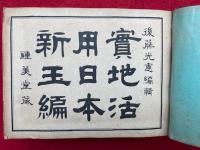 後藤光憲編輯
實地活
用日本
新玉編
鍾美堂藏